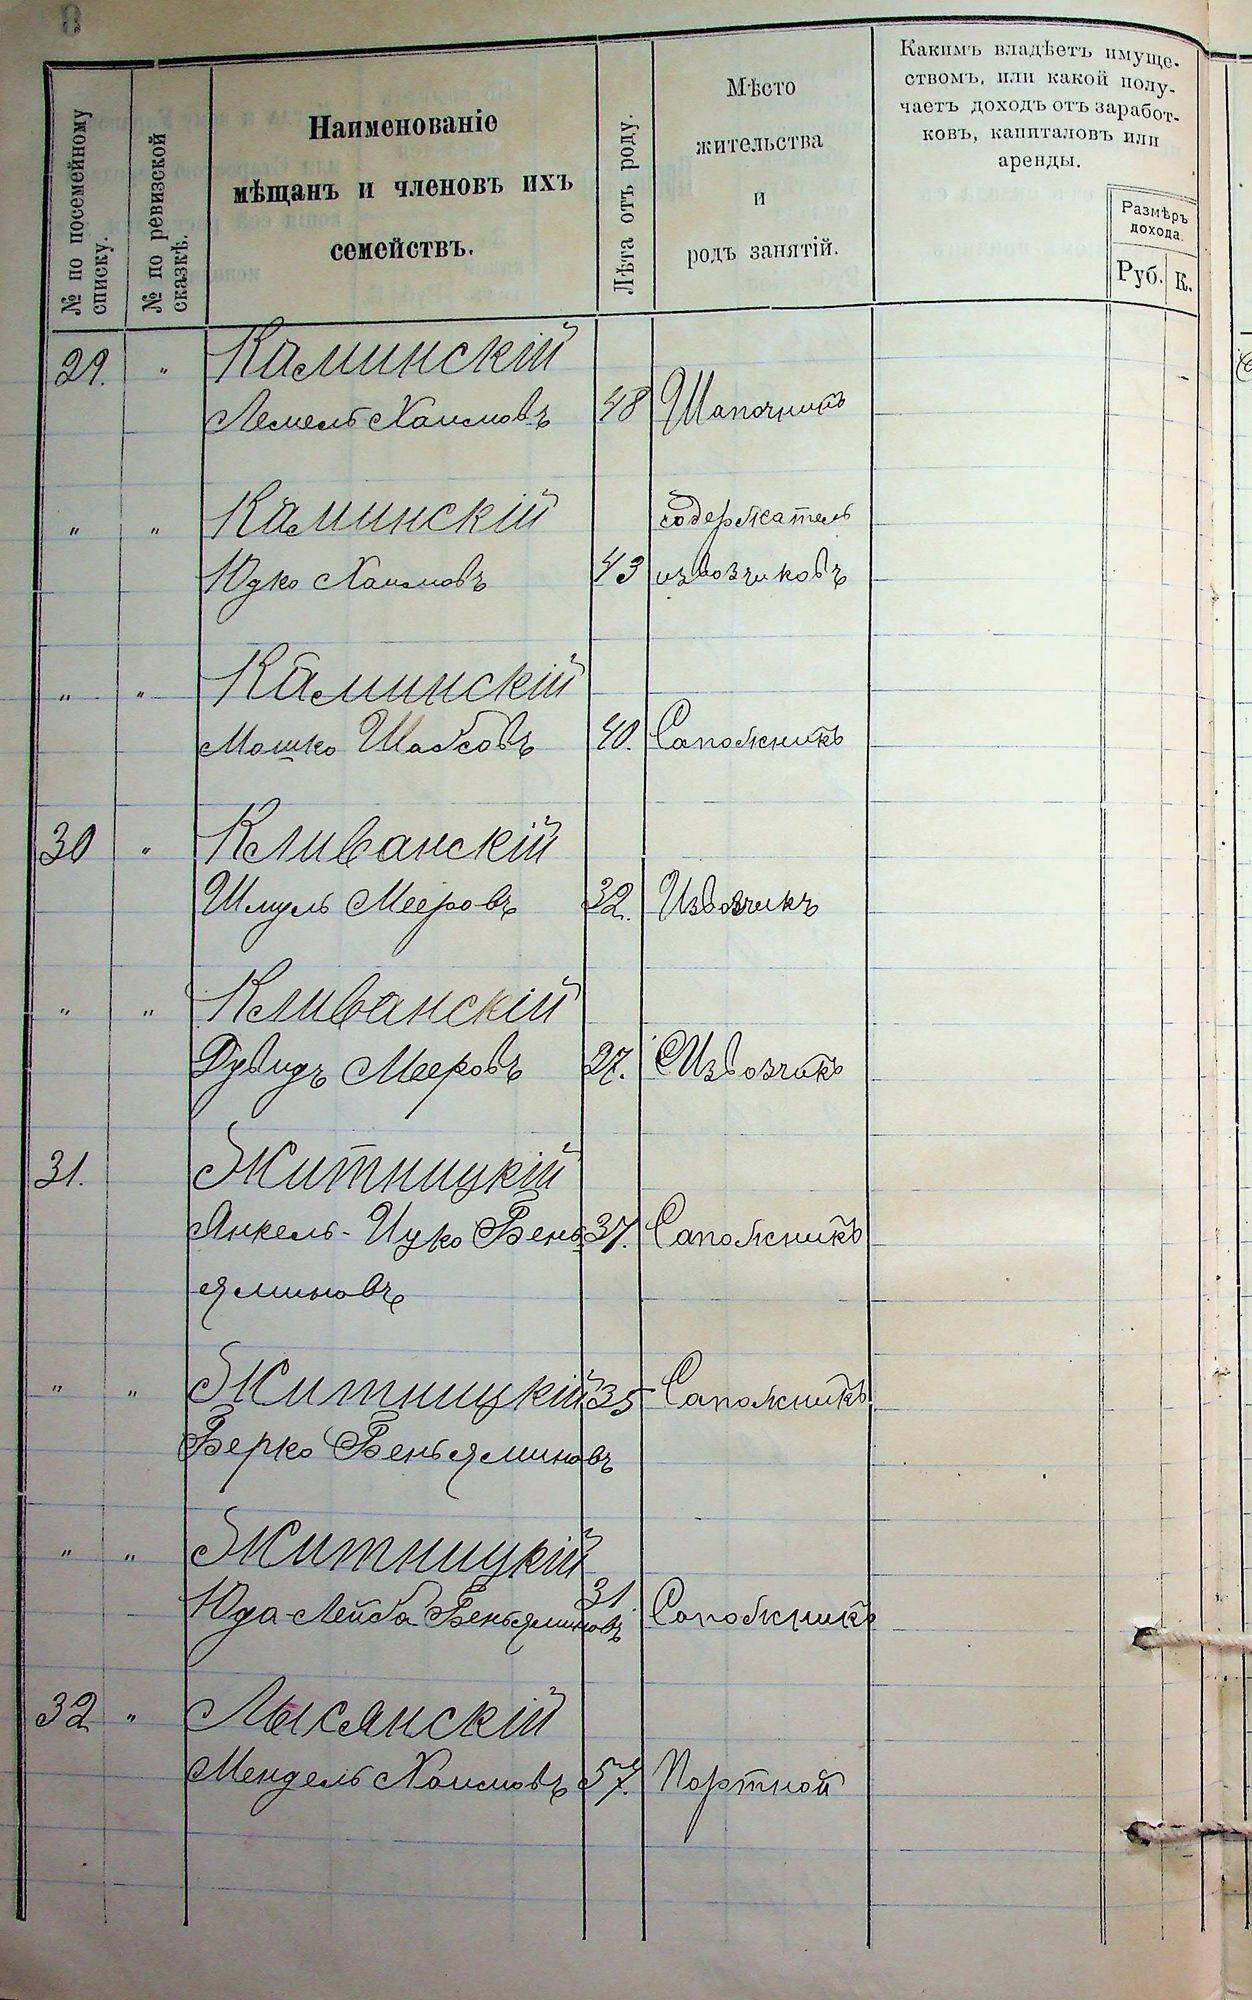 № по посемейному
списку.
№ по ревизской
сказкѣ.
Наименованіе
мѣщанъ и членовъ ихъ
семействъ.
Лѣта отъ роду.
Мѣсто
жительства
и
родъ занятій.
Какимъ владѣетъ имуще-
ствомъ, или какой полу-
чаетъ доходъ отъ заработ-
ковъ, капиталовъ или
аренды.
Размѣръ
дохода.
Руб. К.
29. " Каминскій
Лемель Хаимовъ 48 Шапочникъ
" " Каминскій содержатель
Юдко Хаимовъ 43 извозчиковъ
" " Каминскій
Мошко Шабсовъ 40. Сапожникъ
30 " Кливанскій
Шмуль Мееровъ 32. Извозчикъ
" " Кливанскій
Дувидъ Мееровъ 27. Извозчикъ
31. Житницкій
Янкель-Ицко Бень- 37. Сапожникъ
яминовъ
" " Житницкій 35 Сапожникъ
Берко Беньяминовъ
" " Житницкій
Юда-Лейба Беньяминовъ 31 Сапожникъ
32 " Лысянскій
Мендель Хаимовъ 57. Портной